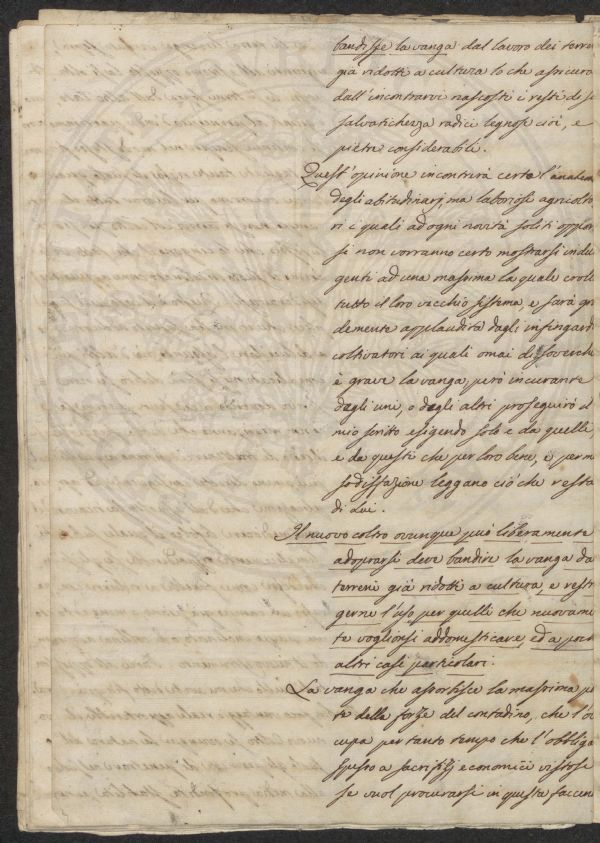 bandisse la vanga dal lavoro dei terre
già ridotti a cultura lo che assicura
dall'incontrarvi nascosti i resti di
salvatichezza radici legnose cioè, e
pietre considerabili.
Quest'opinione incontrerà certo l'anatem
degli abitudinarj, ma laboriosi agricolto
ri i quali ad ogni novità soliti oppor
si non vorranno certo mostrarsi indul
genti ad una massima la quale croll
tutto il loro vecchio sistema, e sarà gr
demente applaudita dagli infingardi
coltivatori ai quali omai di soverchi
è grave la vanga, però incurante
degli uni, o degli altri proseguirò il
mio scritto esigendo solo e da quelli
e da questi che per loro bene, e per m
sodisfazione leggano ciò che resta
di lui.
Il nuovo coltro ovunque può liberamente
adoprarsi deve bandire la vanga da
terreni già ridotti a cultura, e restr
gerne l'uso per quelli che nuovame
te voglionsi addomesticare, ed a poch
altri casi particolari.
La vanga che assorbisce la massima p
te delle forze del contadino, che l'oc
cupa per tanto tempo che l'obbliga
spesso a sacrifizj economici vistosi
se vuol procurarsi in questa faccen